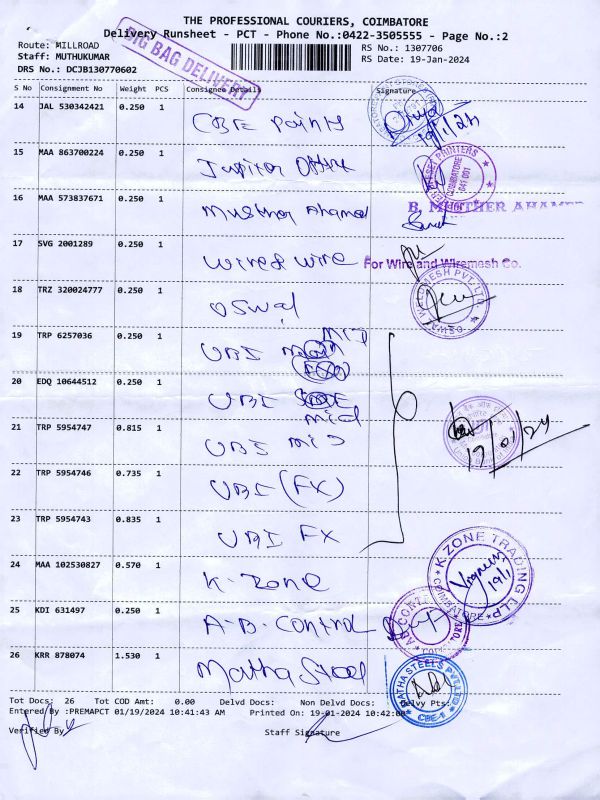 THE PROFESSIONAL COURIERS, COIMBATORE
Delivery Runsheet - PCT - Phone No.:0422-3505555 - Page No.:2
Route: MILLROAD
RS No.: 1307706
Staff: MUTHUKUMAR
RS Date: 19-Jan-2024
DRS No.: DCJB130770602
BIG BAG DELIVERY
S No Consignment No Weight PCS Consignee Details Signature
14 JAL 530342421 0.250 1
CBE Points
19/1/24
15 MAA 863700224 0.250 1
Jupiter
OFFSET PRINTERS
COIMBATORE
641 001
16 MAA 573837671 0.250 1
Ahamed
B. MUSTHER AHAMED
17 SVG 2001289 0.250 1
Wire & Wire
For Wire and Wiremesh Co.
18 TRZ 320024777 0.250 1
Oswal
WELDMESH PVT. LTD.
19 TRP 6257036 0.250 1
UBI
mid
20 EDQ 10644512 0.250 1
UBI
mid
21 TRP 5954747 0.815 1
UBI mid
22 TRP 5954746 0.735 1
UBI (FX)
23 TRP 5954743 0.835 1
UBI FX
24 MAA 102530827 0.570 1
K-Zone
K-ZONE TRADING LLP
COIMBATORE
19/1
25 KDI 631497 0.250 1
A-B-Control
26 KRR 878074 1.530 1
Matha Steel
MATHA STEELS PVT LTD
CBE-1
Tot Docs: 26 Tot COD Amt: 0.00 Delvd Docs: Non Delvd Docs: Delvy Pts:
Entered By :PREMAPCT 01/19/2024 10:41:43 AM Printed On: 19-01-2024 10:42:00
Verified By
Staff Signature